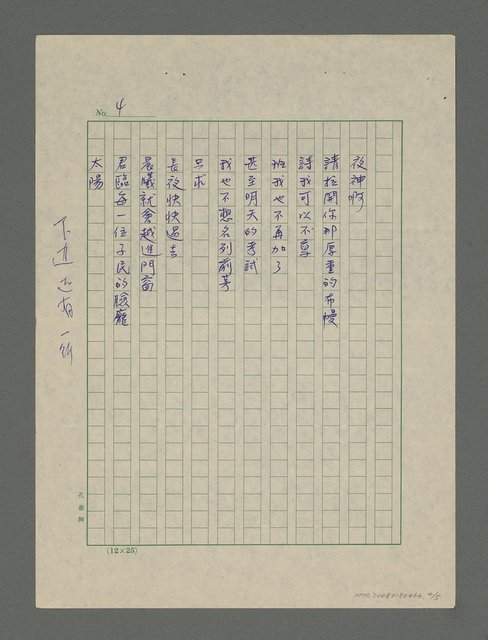 No. 4
夜神啊
請拉開你那厚重的布幔
詩我可以不寫
班我也不再加了
甚至明天的考試
我也不想名列前茅
只求
長夜快快過去
晨曦就會越進門窗
君臨每一位子民的臉龐
太陽
下邊還有一紙
孔雀牌
(12×25)